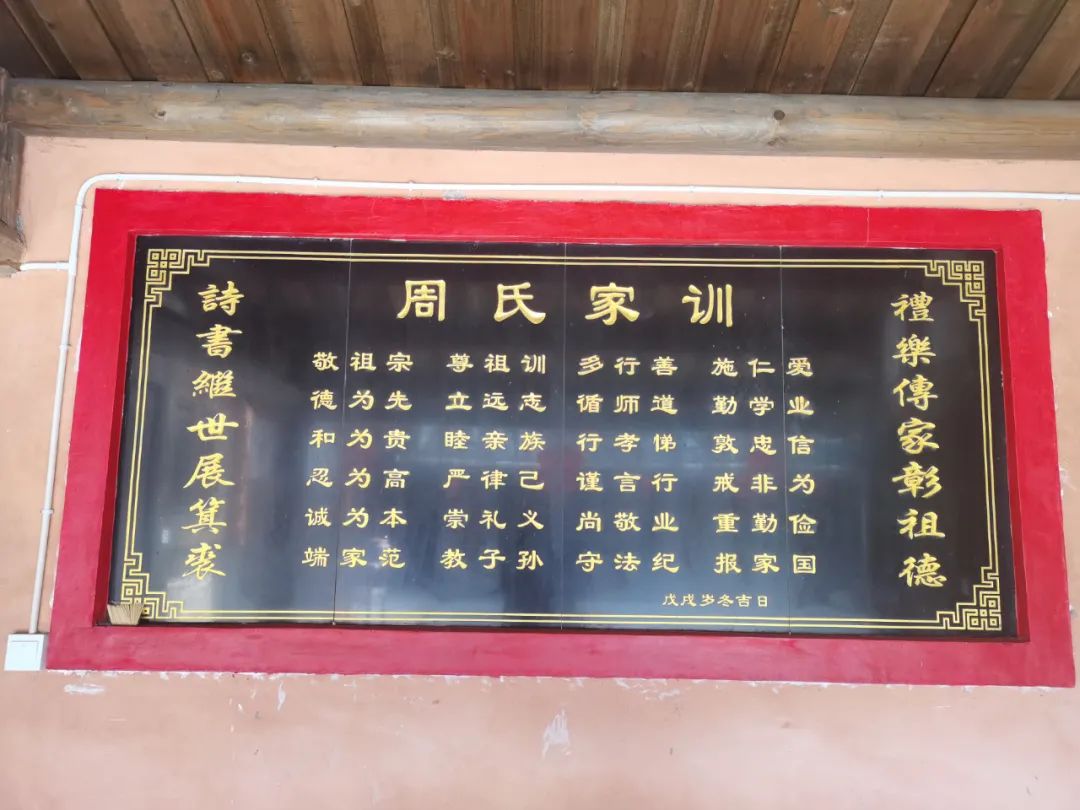 周氏家训
禮樂傳家彰祖德
敬祖宗 尊祖训 多行善 施仁爱
德为先 立远志 循师道 勤学业
和为贵 睦亲族 行孝悌 敦忠信
忍为高 严律己 谨言行 戒非为
诚为本 崇礼义 尚敬业 重勤俭
端家范 教子孙 守法纪 报家国
戊戌岁冬吉日
詩書繼世展箕裘